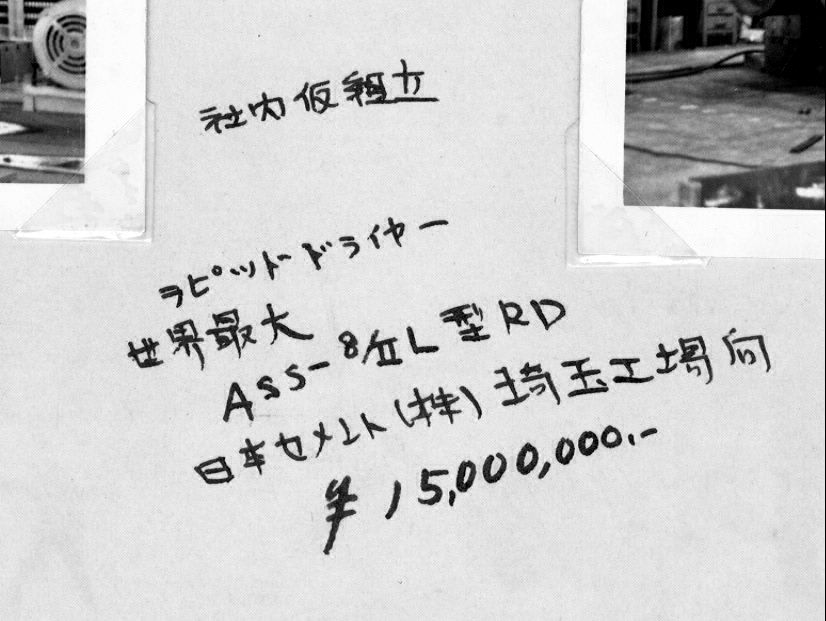 社内仮組立
ラピットドライヤー
世界最大
ASS-8/ⅡL型RD
日本セメント(株)埼玉工場向
¥15,000,000.-